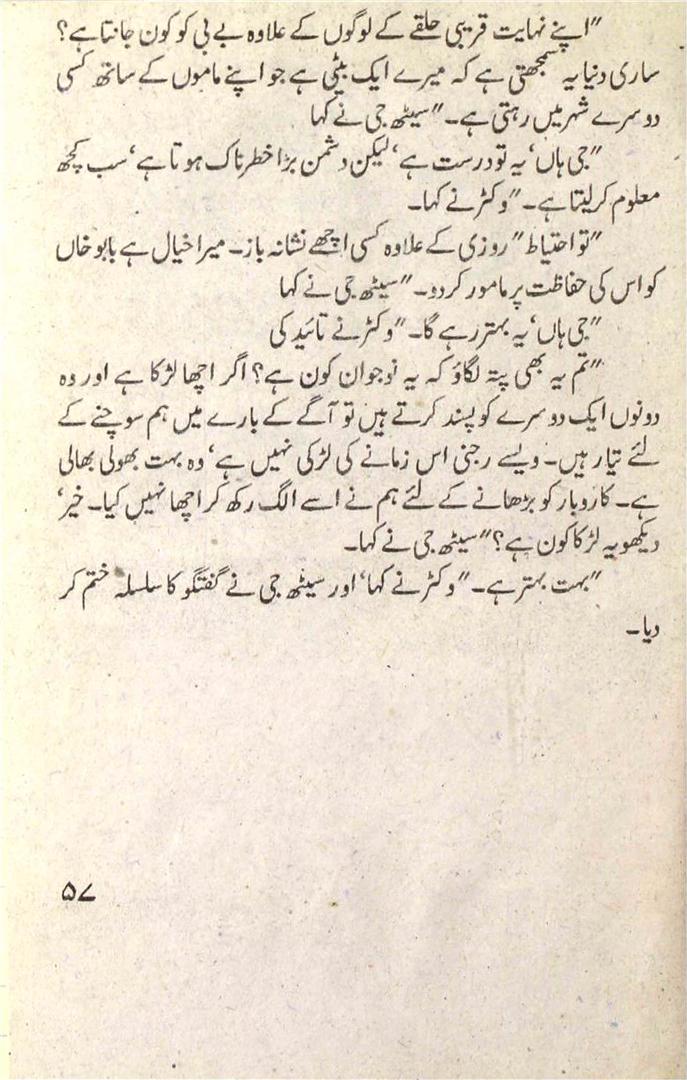 ”اپنے نہایت قریبی حلقے کے لوگوں کے علاوہ بے بی کو کون جانتا ہے؟
ساری دنیا یہ سمجھتی ہے کہ میرے ایک بیٹی ہے جو اپنے ماموں کے ساتھ کسی
دوسرے شہر میں رہتی ہے۔“ سیٹھ جی نے کہا
”جی ہاں‘ یہ تو درست ہے‘ لیکن دشمن بڑا خطرناک ہوتا ہے‘ سب کچھ
معلوم کر لیتا ہے۔“ وکٹر نے کہا۔
”تو احتیاط“ روزی کے علاوہ کسی اچھے نشانہ باز۔ میرا خیال ہے بابو خاں
کو اس کی حفاظت پر مامور کر دو۔“ سیٹھ جی نے کہا
”جی ہاں‘ یہ بہتر رہے گا۔“ وکٹر نے تائید کی
”تم یہ بھی پتہ لگاؤ کہ یہ نوجوان کون ہے؟ اگر اچھا لڑکا ہے اور وہ
دونوں ایک دوسرے کو پسند کرتے ہیں تو آگے کے بارے میں ہم سوچنے کے
لئے تیار ہیں۔ ویسے رجنی اس زمانے کی لڑکی نہیں ہے‘ وہ بہت بھولی بھالی
ہے۔ کاروبار کو بڑھانے کے لئے ہم نے اسے الگ رکھ کر اچھا نہیں کیا۔ خیر‘
دیکھو یہ لڑکا کون ہے؟“ سیٹھ جی نے کہا۔
”بہت بہتر ہے۔“ وکٹر نے کہا‘ اور سیٹھ جی نے گفتگو کا سلسلہ ختم کر
دیا۔
۵۷